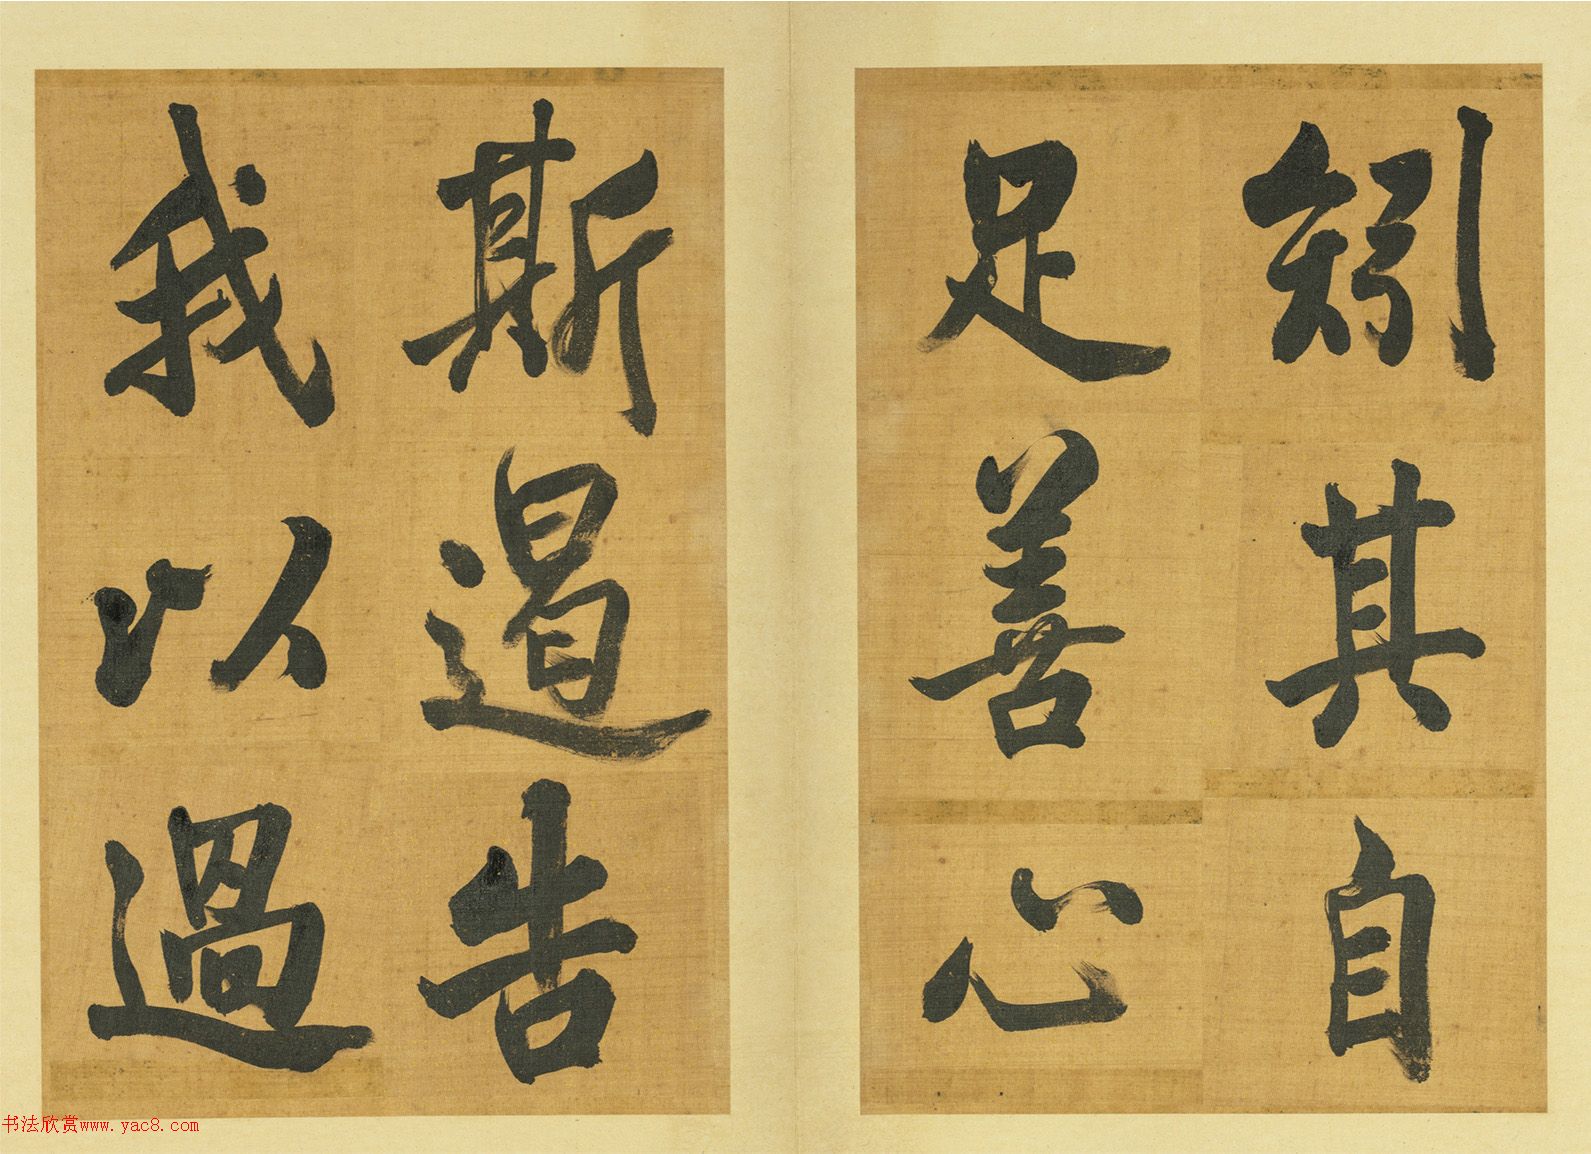 矧其自
足善心
斯遏告
我以過
书法欣赏www.yac8.com